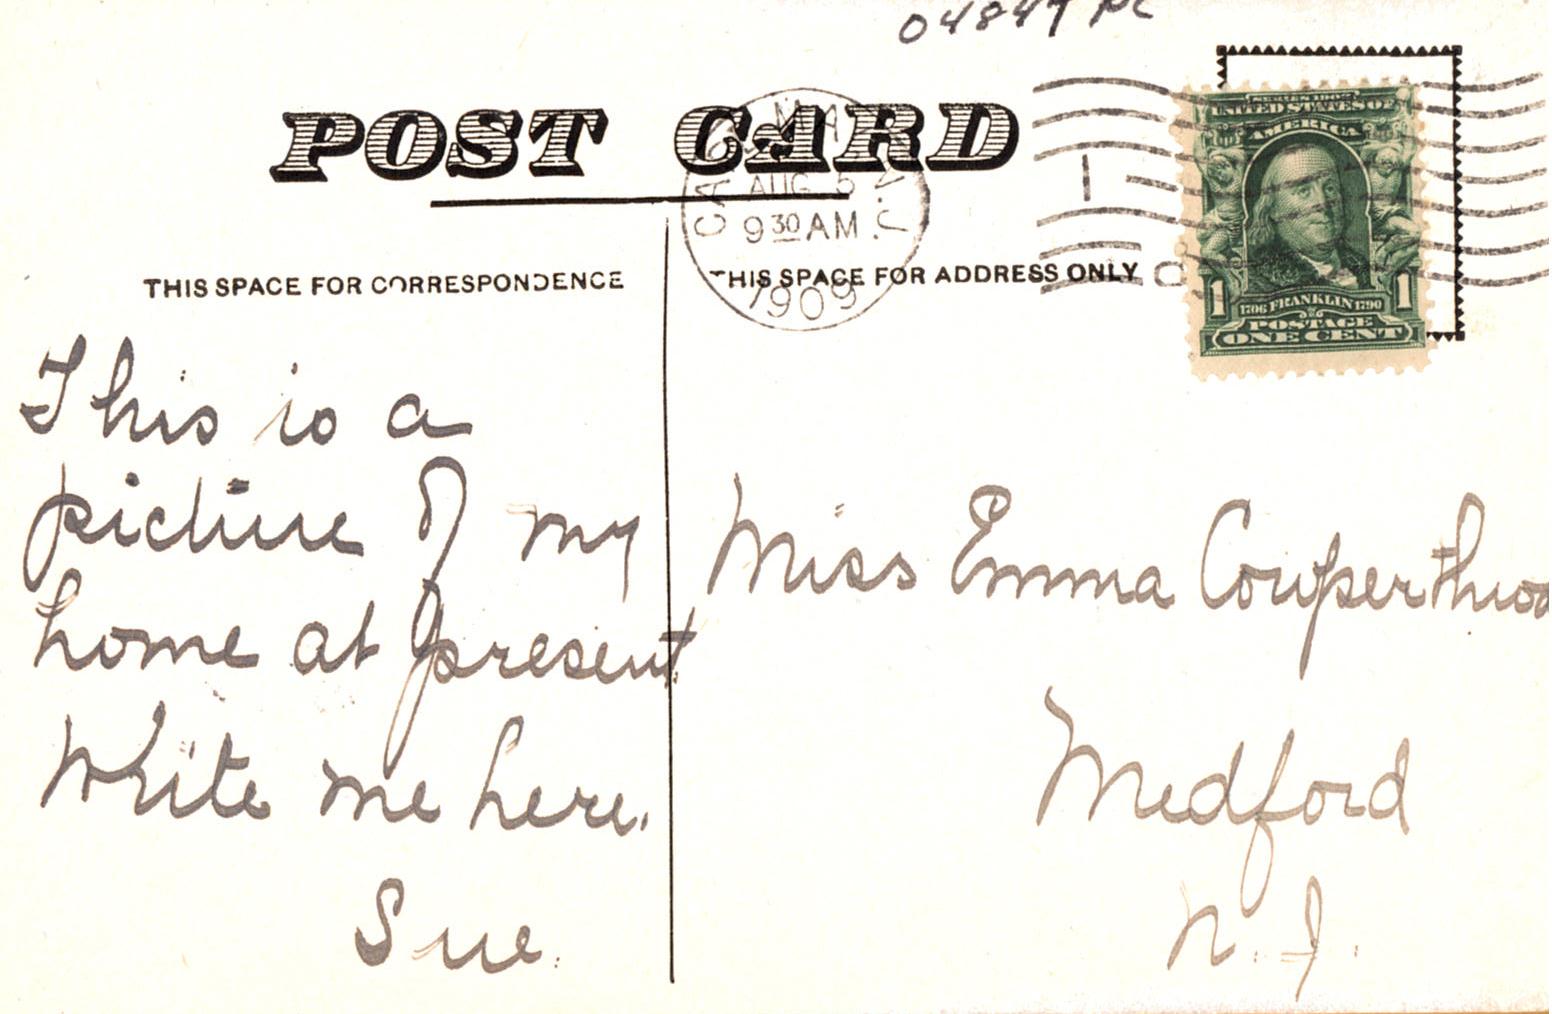 04847 PC
POST CARD
CAPE MAY N.J.
AUG 5
9 30 AM
1909
1
SERIES 1902
UNITED STATES OF
AMERICA
1 1706 FRANKLIN 1790 1
POSTAGE
ONE CENT
THIS SPACE FOR CORRESPONDENCE
THIS SPACE FOR ADDRESS ONLY
This is a
picture of my
home at present
Write me here.
Sue.
Miss Emma Cowperthwa
Medford
N.J.